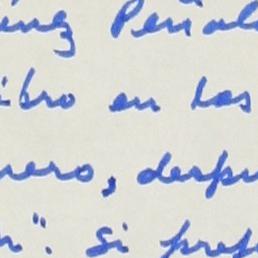 inez Peñal
ibro en las
nero, despu
n". Si pref